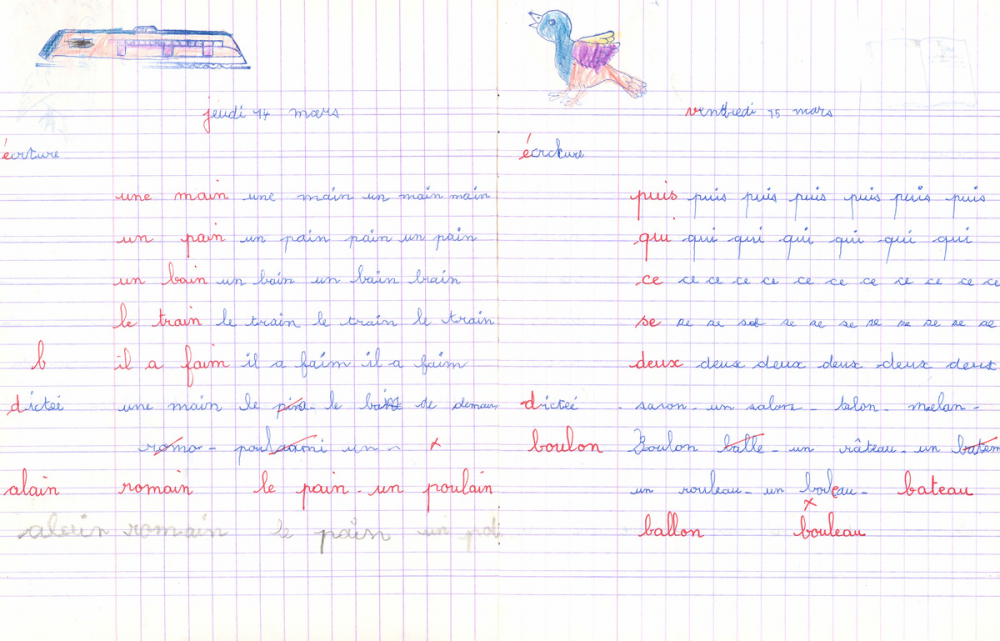 jeudi 14 mars
écriture
une main une main un main main
un pain un pain pain un pain
un bain un bain un bain brain
le train le train le train le train
b il a faim il a faim il a faim
dictéé une main le le de
romo - un
alain romain le pain - un poulain
alain romain le pain un pol
vendredi 15 mars
écriture
puis puis puis puis puis puis puis
qui qui qui qui qui qui qui
ce ce ce ce ce ce ce ce ce ce ce ce
se se se se se se se se se se
deux deux deux deux deux deux
dictéé - savon - un salon - talon - melan -
boulon Boulon balle - un râteau - un batem
un rouleau - un boleau - bateau
x
ballon bouleau